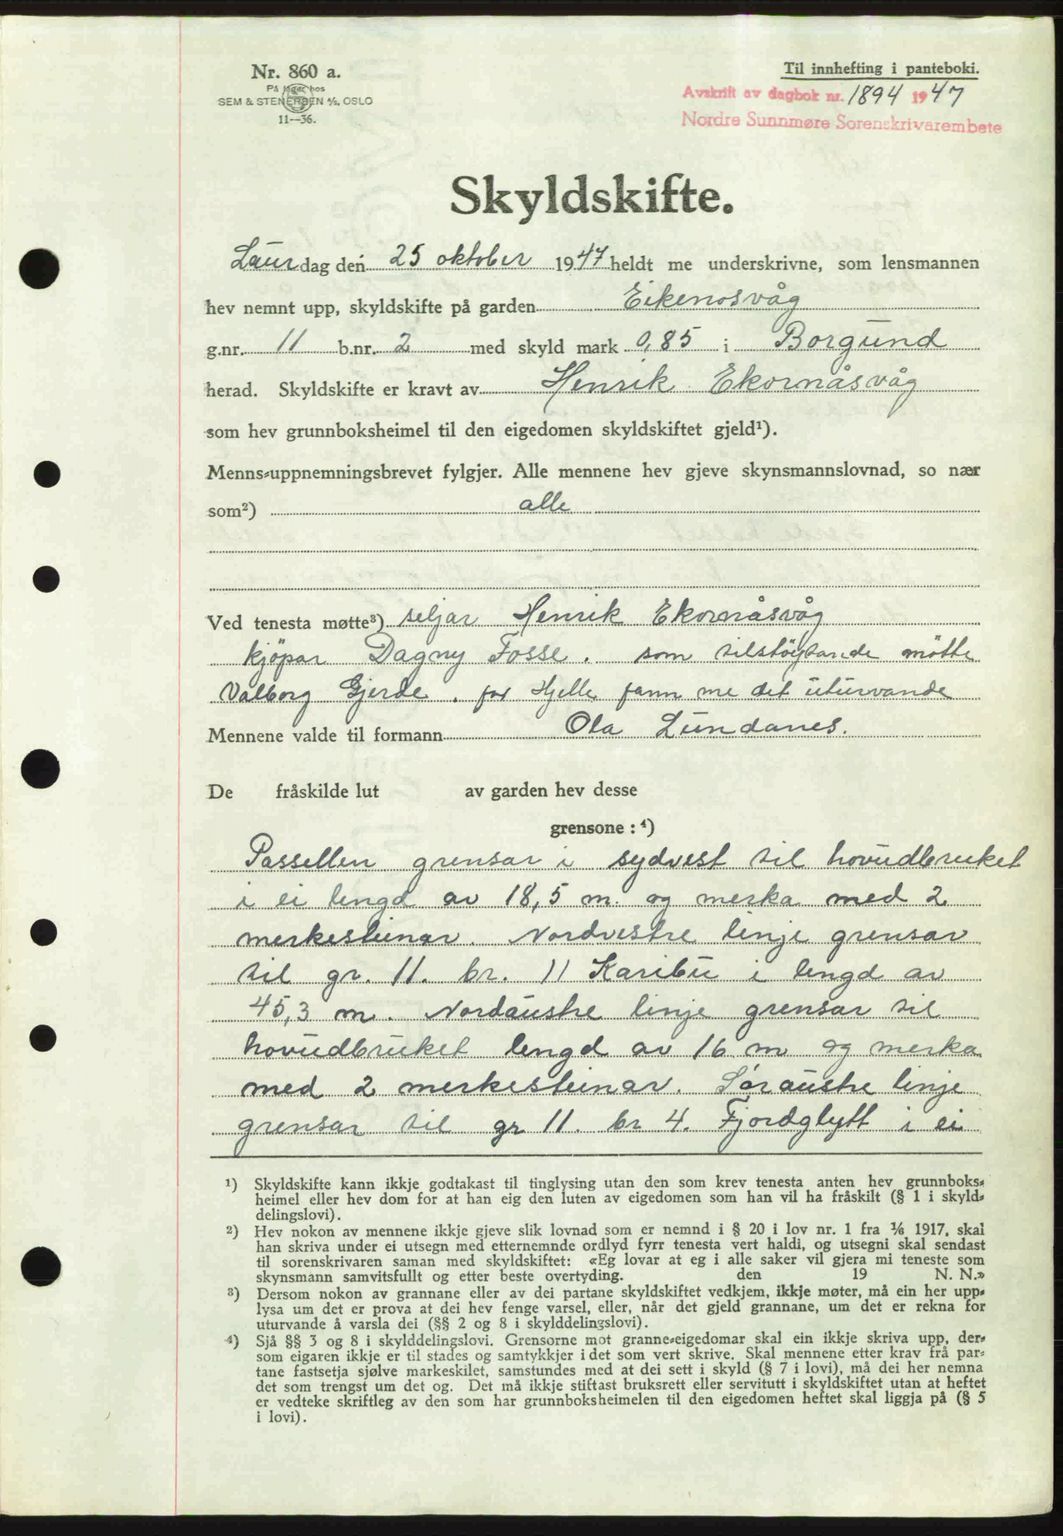 Nr. 860 a.
På lager hos
SEM & STENERSEN A/S, OSLO
11—36.
Til innhefting i panteboki.
Avskrift av dagbok nr. 1894 1947
Nordre Sunnmøre Sorenskrivarembete
Skyldskifte.
Laurdag den 25 oktober 1947 heldt me underskrivne, som lensmannen
hev nemnt upp, skyldskifte på garden Eikenosvåg
g.nr. 11 b.nr. 2 med skyld mark 0,85 i Borgund
herad. Skyldskifte er kravt av Henrik Ekornåsvåg
som hev grunnboksheimel til den eigedomen skyldskiftet gjeld¹).
Menns-uppnemningsbrevet fylgjer. Alle mennene hev gjeve skynsmannslovnad, so nær
som²) alle
Ved tenesta møtte³) seljar Henrik Ekornåsvåg
kjöpar Dagny Fosse. som tilstöytande mötte
Valborg Gjerde. for Hjelle fann me det uturvande
Mennene valde til formann Ola Lundanes.
De fråskilde lut av garden hev desse
grensone : ⁴)
Passellen grensar i sydvest til hovudbruket
i ei lengd av 18,5 m. og merka med 2
merkesteinar. Nordvestre linje grensar
til gr. 11. br. 11 Karibu i lengd av
45,3 m. Nordaustre linje grensar til
hovudbruket lengd av 16 m og merka
med 2 merkesteinar. Söraustre linje
grensar til gr 11. br 4. Fjordglytt i ei
¹) Skyldskifte kann ikkje godtakast til tinglysing utan den som krev tenesta anten hev grunnboks-
heimel eller hev dom for at han eig den luten av eigedomen som han vil ha fråskilt (§ 1 i skyld-
delingslovi).
²) Hev nokon av mennene ikkje gjeve slik lovnad som er nemnd i § 20 i lov nr. 1 fra ⅙ 1917, skal
han skriva under ei utsegn med etternemnde ordlyd fyrr tenesta vert haldi, og utsegni skal sendast
til sorenskrivaren saman med skyldskiftet: «Eg lovar at eg i alle saker vil gjera mi teneste som
skynsmann samvitsfullt og etter beste overtyding. den 19 N. N.»
³) Dersom nokon av grannane eller av dei partane skyldskiftet vedkjem, ikkje møter, må ein her upp-
lysa um det er prova at dei hev fenge varsel, eller, når det gjeld grannane, um det er rekna for
uturvande å varsla dei (§§ 2 og 8 i skylddelingslovi).
⁴) Sjå §§ 3 og 8 i skylddelingslovi. Grensorne mot granne-eigedomar skal ein ikkje skriva upp, der-
som eigaren ikkje er til stades og samtykkjer i det som vert skrive. Skal mennene etter krav frå par-
tane fastsetja sjølve markeskilet, samstundes med at dei sett i skyld (§ 7 i lovi), må dei her nemna
det som trengst um det og. Det må ikkje stiftast bruksrett eller servitutt i skyldskiftet utan at heftet
er vedteke skriftleg av den som har grunnboksheimelen til den eigedomen heftet skal liggja på (§ 5
i lovi).